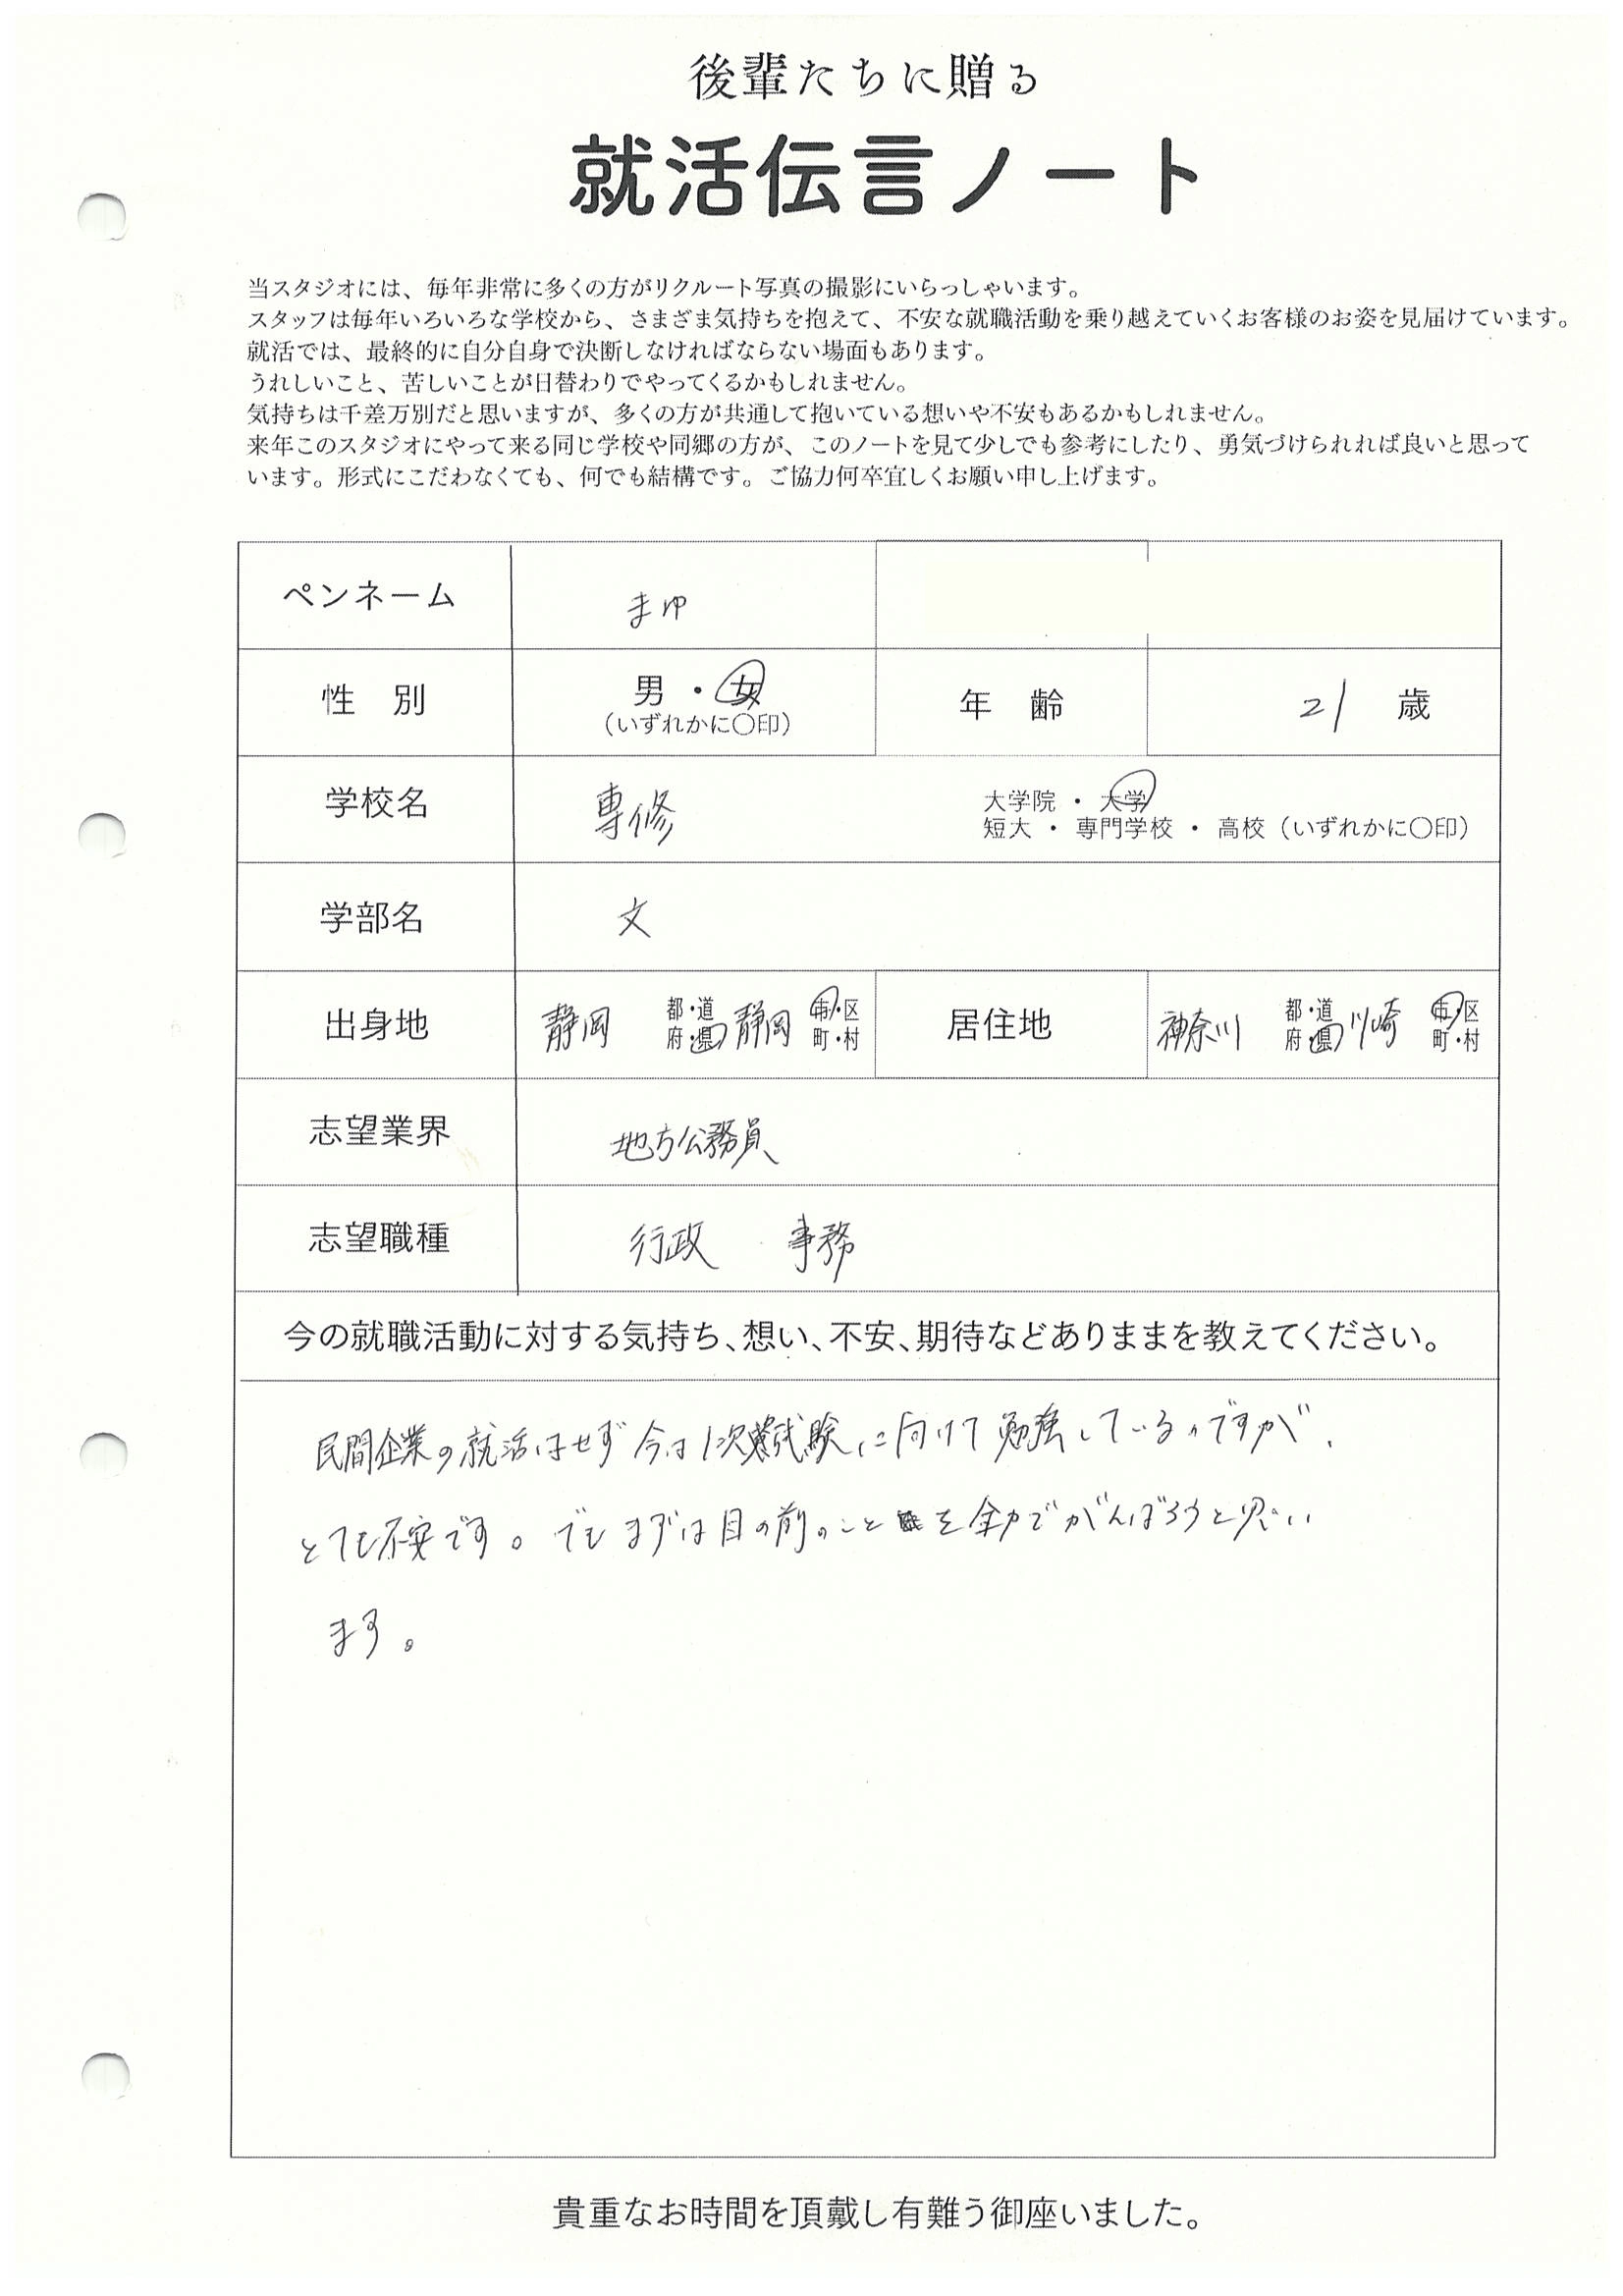 後輩たちに贈る
就活伝言ノート
当スタジオには、毎年非常に多くの方がリクルート写真の撮影にいらっしゃいます。
スタッフは毎年いろいろな学校から、さまざま気持ちを抱えて、不安な就職活動を乗り越えていくお客様のお姿を見届けています。
就活では、最終的に自分自身で決断しなければならない場面もあります。
うれしいこと、苦しいことが日替わりでやってくるかもしれません。
気持ちは千差万別だと思いますが、多くの方が共通して抱いている想いや不安もあるかもしれません。
来年このスタジオにやって来る同じ学校や同郷の方が、このノートを見て少しでも参考にしたり、勇気づけられれば良いと思って
います。形式にこだわなくても、何でも結構です。ご協力何卒宜しくお願い申し上げます。
ペンネーム まゆ
性 別 男・女 年 齢 21 歳
（いずれかに〇印）
学校名 専修 大学院 ・ 大学
短大 ・ 専門学校 ・ 高校（いずれかに〇印）
学部名 文
出身地 静岡 都・道府・県 静岡 市・区町・村 居住地 神奈川 都・道府・県 川崎 市・区町・村
志望業界 地方公務員
志望職種 行政 事務
今の就職活動に対する気持ち、想い、不安、期待などありままを教えてください。
民間企業の就活はせず今は1次試験に向けて勉強しているのですが、
とても不安です。でもまずは目の前のことを全力でがんばろうと思い
ます。
貴重なお時間を頂戴し有難う御座いました。